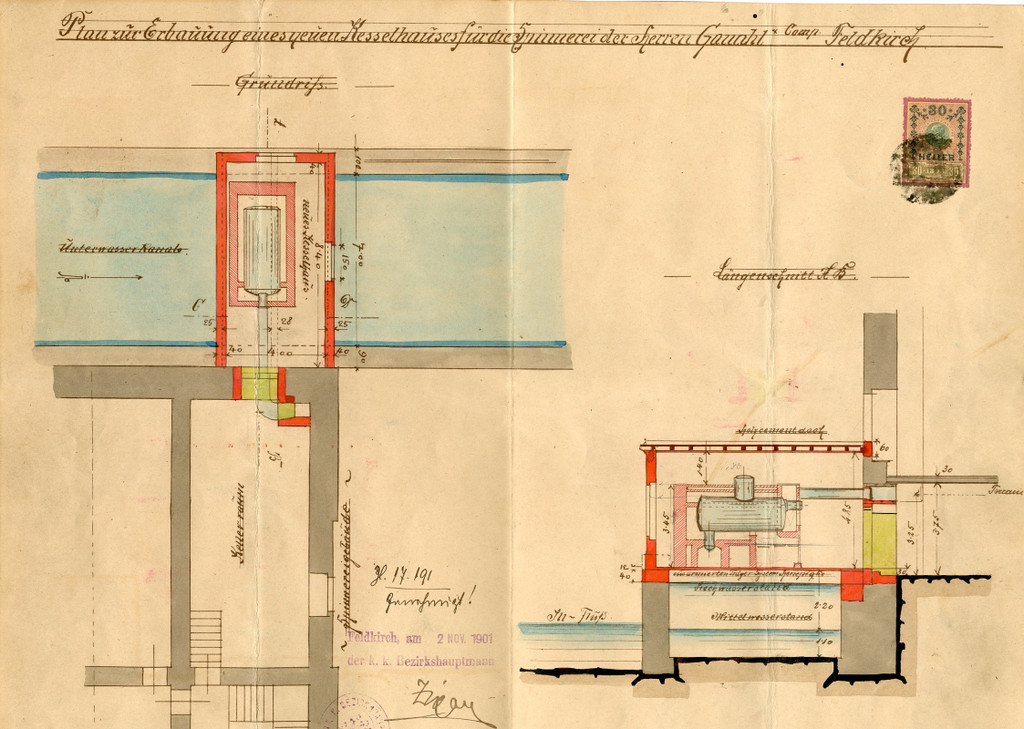 Plan zur Erbauung eines neuen Kesselhauses für die Spinnerei der Herren Ganahl & Comp. Feldkirch
Grundriß.
A
30
HELLER
100
40
neues Kesselhaus
8·40
7·00
150
Unterwasser Kanal
C
D
25
28
25
40
4·00
40
90
B
Kellerraum
Spinnereigebäude
Z. 17.191
Genehmigt!
Feldkirch, am 2 NOV. 1901
der k. k. Bezirkshauptmann
Längenschnitt A B.
Holzcementdach
60
30
1·40
3·45
4·85
3·25
3·75
40
Hochwasserstand
Ill-Fluß
Mittelwasserstand
2·20
1·10